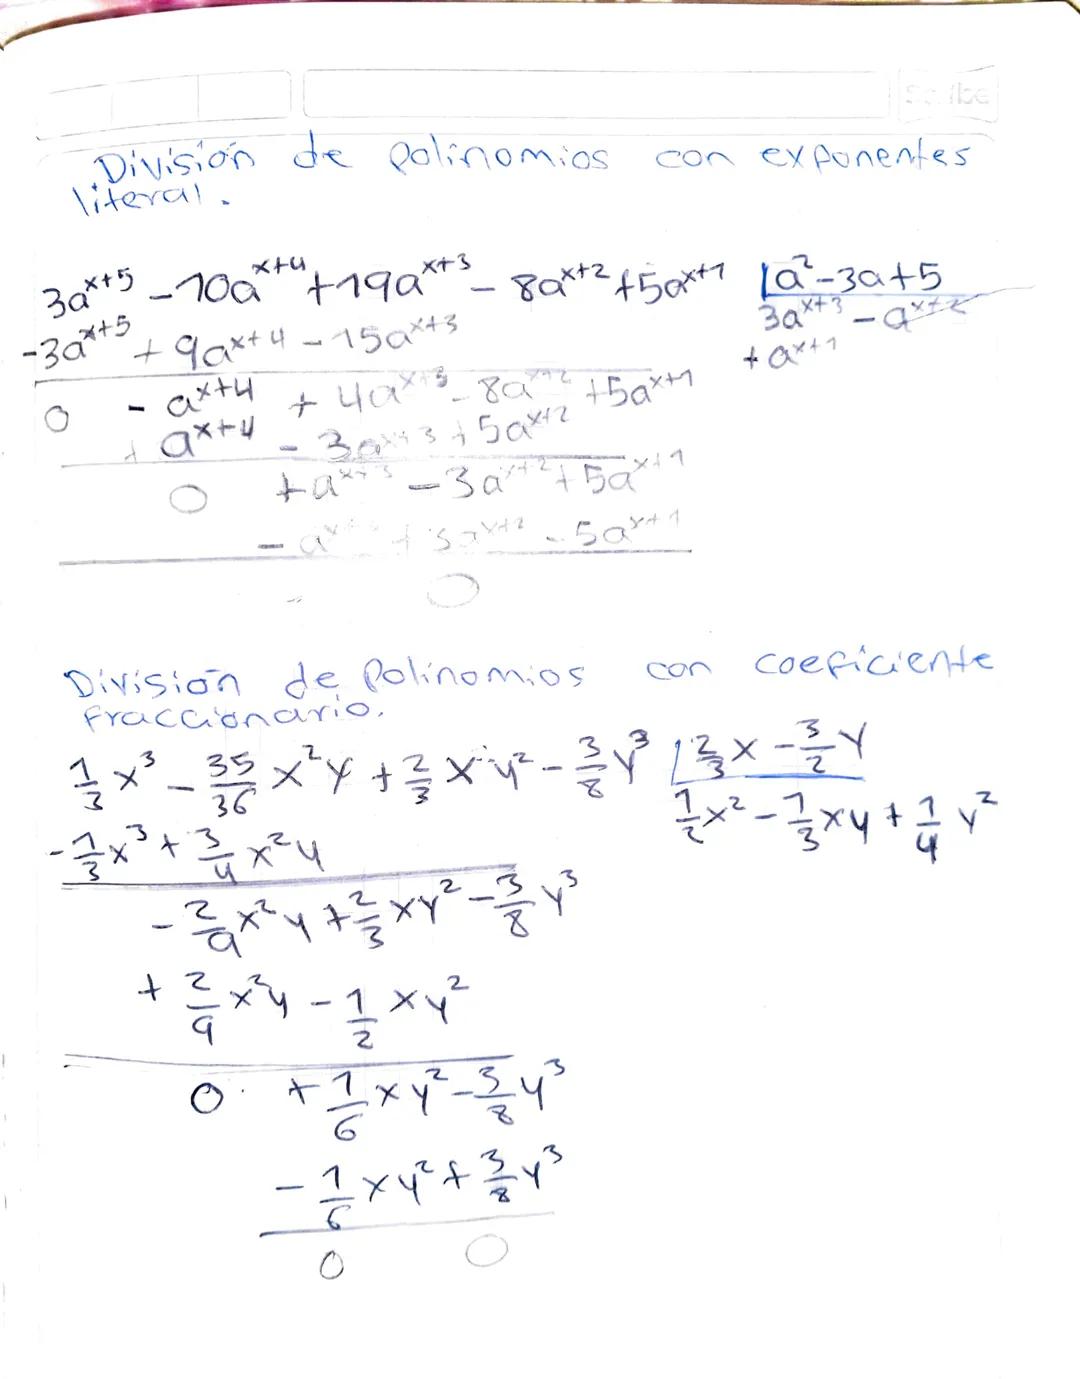 Scribe
División de polinomios con exponentes
literal.
3a^{x+5} - 10a^{x+4} + 19a^{x+3} - 8a^{x+2} + 5a^{x+1} | a² - 3a + 5
-3a^{x+5} + 9a^{x+4} - 15a^{x+3} 3a^{x+3} - a^{x+2}
+ a^{x+1}
0 - a^{x+4} + 4a^{x+3} - 8a^{x+2} + 5a^{x+1}
+ a^{x+4} - 3a^{x+3} + 5a^{x+2}
0 + a^{x+3} - 3a^{x+2} + 5a^{x+1}
- a^{x} + 3a^{x+2} - 5a^{x+1}
0
División de Polinomios con coeficiente
fraccionario.
1/3 x³ - 35/36 x²y + 2/3 xy² - 3/8 y³ | 2/3 x - 3/2 y
-1/3 x³ + 3/4 x²y 1/2 x² - 1/3 xy + 1/4 y²
- 2/9 x²y + 2/3 xy² - 3/8 y³
+ 2/9 x²y - 1/2 xy²
0 + 1/6 xy² - 3/8 y³
- 1/6 xy² + 3/8 y³
0 0